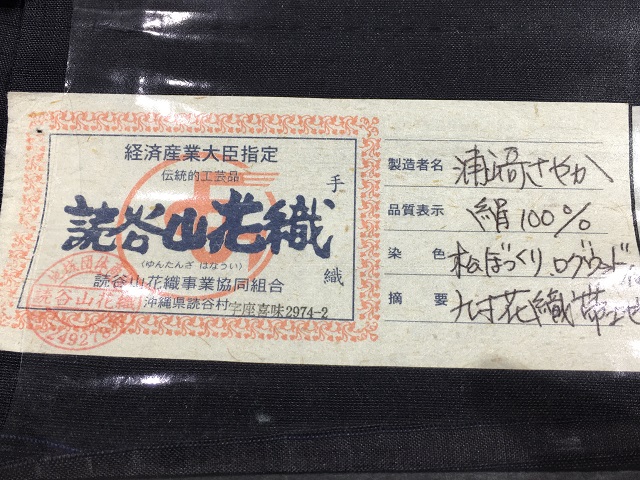 経済産業大臣指定
伝統的工芸品
読谷山花織
(ゆんたんざ はなうい)
手織
読谷山花織事業協同組合
沖縄県読谷村字座喜味2974-2
読谷山花織
製造者名 浦崎さやか
品質表示 絹100%
染色 松ぼっくり ログウッド
摘要 九寸花織帯